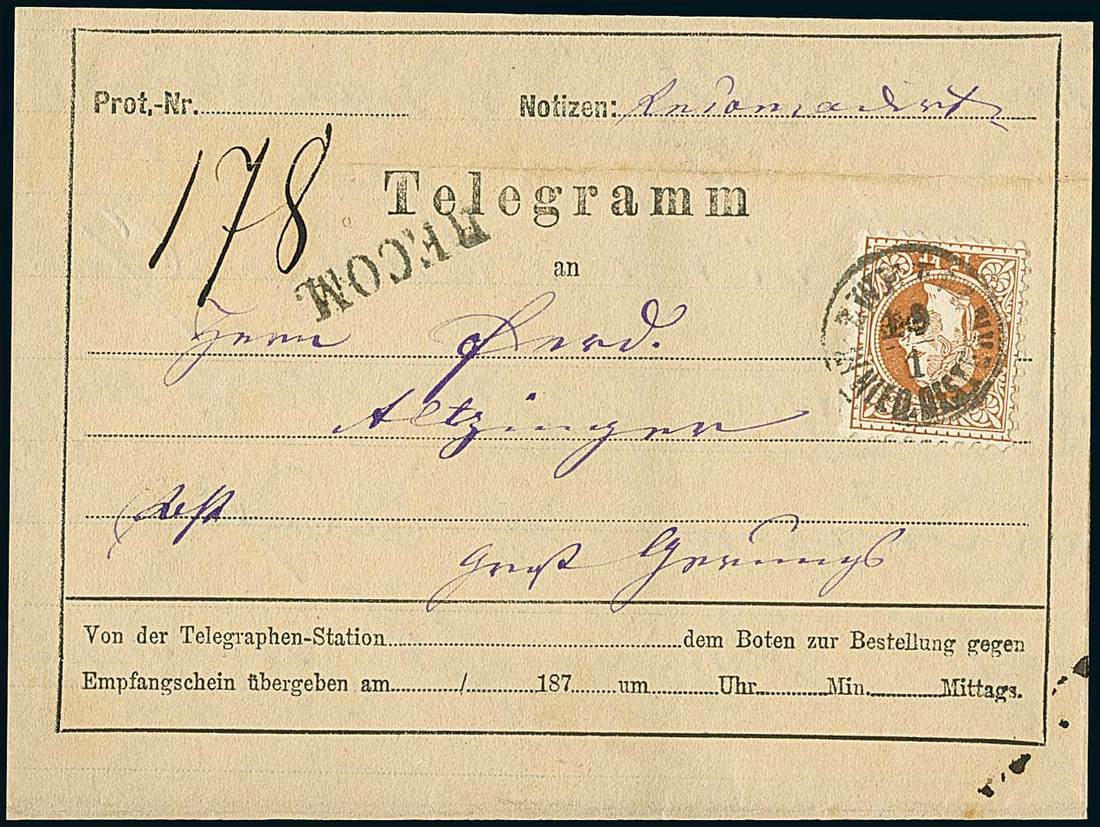 Prot.-Nr.
Notizen: Recomandirt
178
Telegramm
RECOM.
an
Herrn Ferd.
Altzinger
Groß Gerungs
ZWET
9
1
NIED. OEST
Von der Telegraphen-Station dem Boten zur Bestellung gegen
Empfangschein übergeben am / 187 um Uhr Min. Mittags.